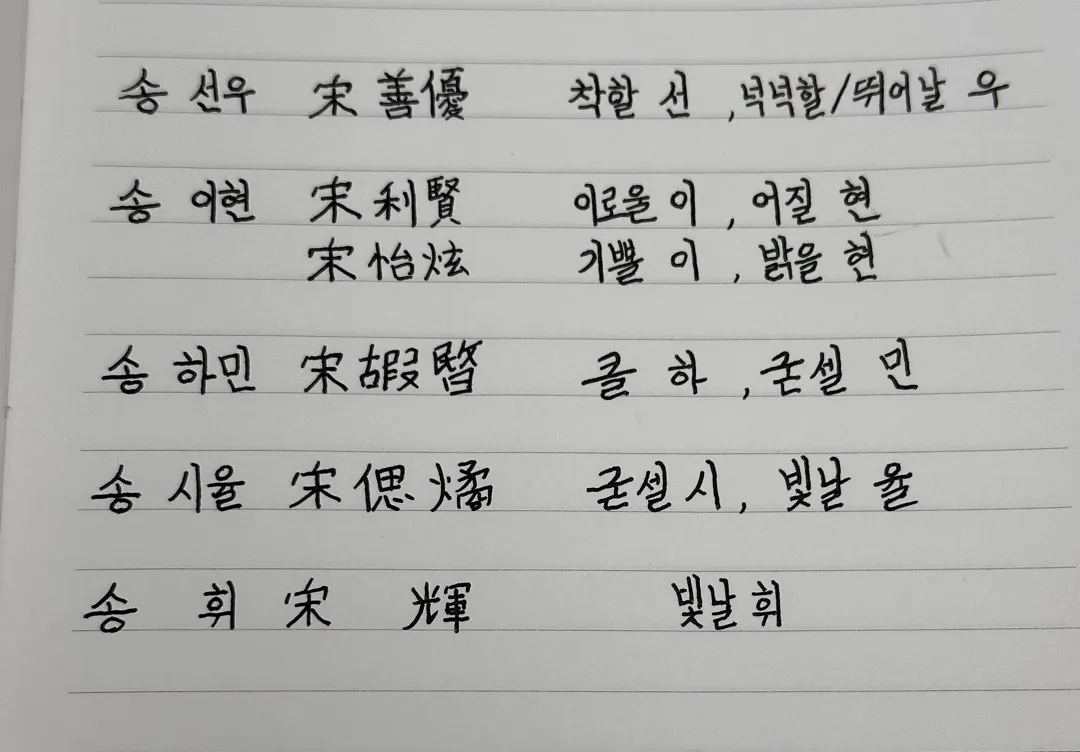 송 선우 宋 善優 착할 선 , 넉넉할/뛰어날 우
송 이현 宋 利賢 이로울 이 , 어질 현
宋 怡炫 기쁠 이 , 밝을 현
송 하민 宋 嘏暋 클 하 , 굳셀 민
송 시율 宋 偲燏 굳셀 시 , 빛날 율
송 휘 宋 輝 빛날 휘